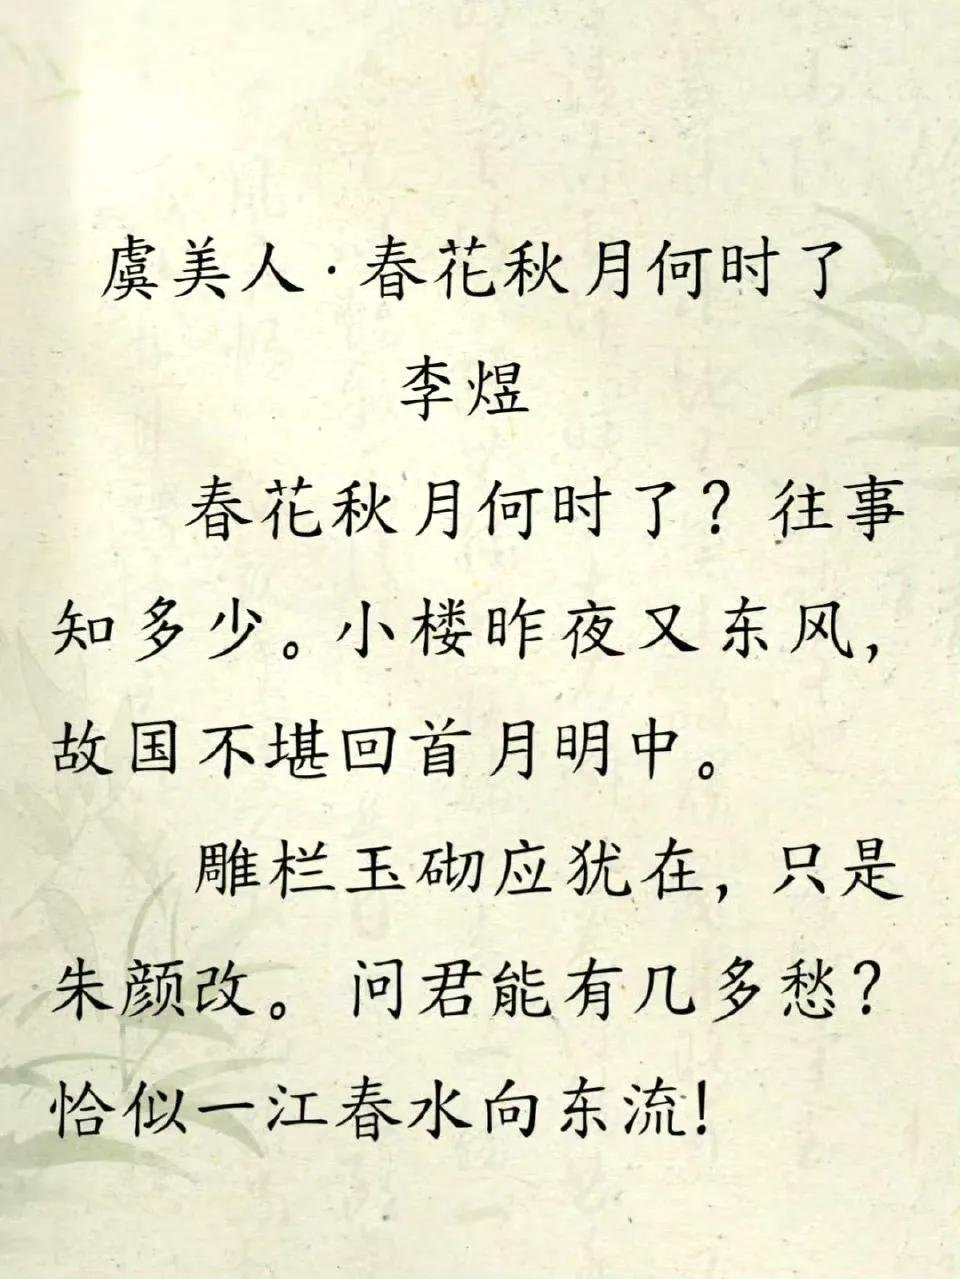 虞美人·春花秋月何时了
李煜
春花秋月何时了？往事
知多少。小楼昨夜又东风，
故国不堪回首月明中。
雕栏玉砌应犹在，只是
朱颜改。问君能有几多愁？
恰似一江春水向东流！